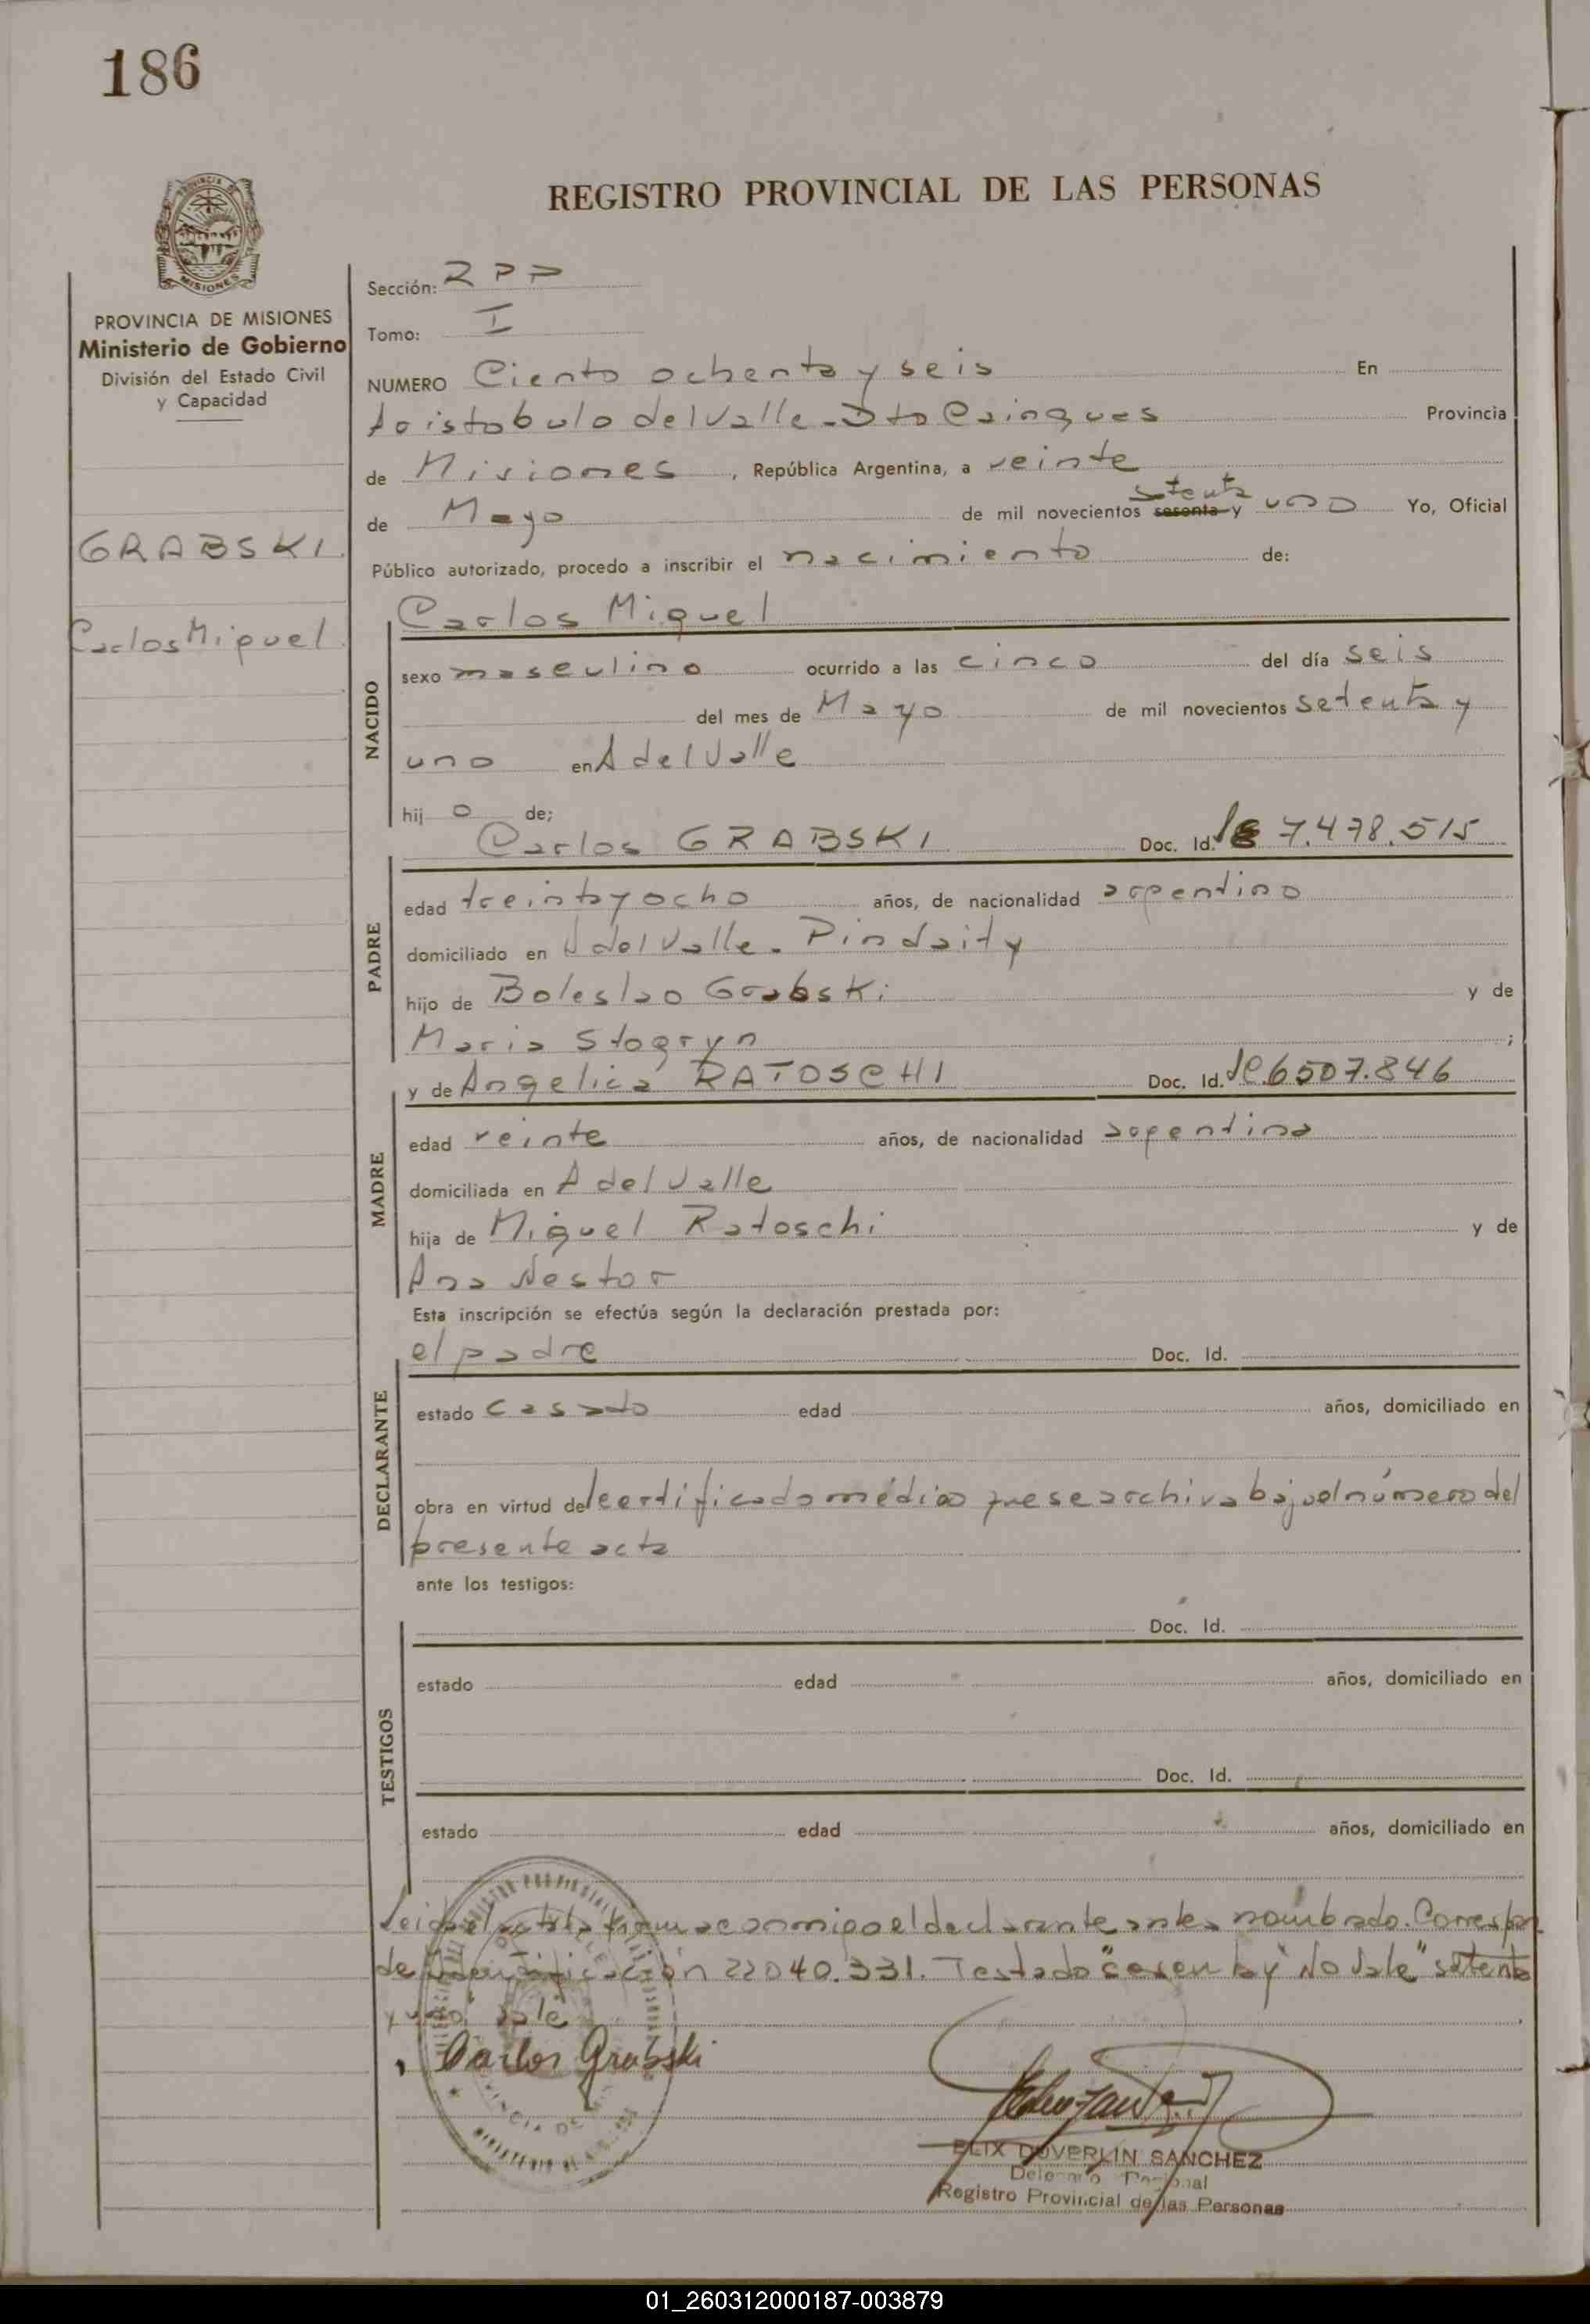 186
PROVINCIA DE
MISIONES
PROVINCIA DE MISIONES
Ministerio de Gobierno
División del Estado Civil
y Capacidad
GRABSKI
Carlos Miguel
REGISTRO PROVINCIAL DE LAS PERSONAS
Sección: RPP
Tomo: I
NUMERO Ciento ochenta y seis En
Aristobulo del Valle - Dto Cainguas Provincia
de Misiones, República Argentina, a veinte
de Mayo de mil novecientos sesenta y setenta uno Yo, Oficial
Público autorizado, procedo a inscribir el nacimiento de:
Carlos Miguel
NACIDO
sexo masculino ocurrido a las cinco del día seis
del mes de Mayo de mil novecientos setenta y
uno en A del Valle
hijo de;
Carlos GRABSKI Doc. Id. 7.478.515
PADRE
edad treinta y ocho años, de nacionalidad argentino
domiciliado en A del Valle - Pindaity
hijo de Boleslao Grabski y de
Maria Stogryn ;
y de Angelica RATOSCHI Doc. Id. 6507.846
MADRE
edad veinte años, de nacionalidad argentina
domiciliada en A del Valle
hija de Miguel Ratoschi y de
Ana Nestor
Esta inscripción se efectúa según la declaración prestada por:
el padre Doc. Id.
DECLARANTE
estado casado edad años, domiciliado en
obra en virtud del certificado médico que se archiva bajo el número del
presente acta
ante los testigos:
Doc. Id.
TESTIGOS
estado edad años, domiciliado en
Doc. Id.
estado edad años, domiciliado en
Leida el acta la firma conmigo el declarante antes nombrado. Correspon
de Identificación 22040.331. Testado "sesenta y" No Vale "setenta
y uno" vale
Carlos Grabski
ELIX DUVERLIN SANCHEZ
Registro Provincial de las Personas
01_260312000187-003879